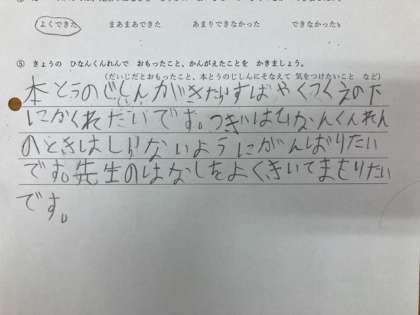 よくできた まあまあできた あまりできなかった できなかった
⑤ きょうの ひなんくんれんで おもったこと、かんがえたことを かきましょう。
（だいじだとおもったこと、本とうのじしんにそなえて 気をつけたいこと など）
本とうのじしんがきたらすばやくつくえの下
にかくれたいです。つぎはひなんくんれん
のときはしゃべらないようにがんばりたい
です。先生のはなしをよくきいてまもりたい
です。